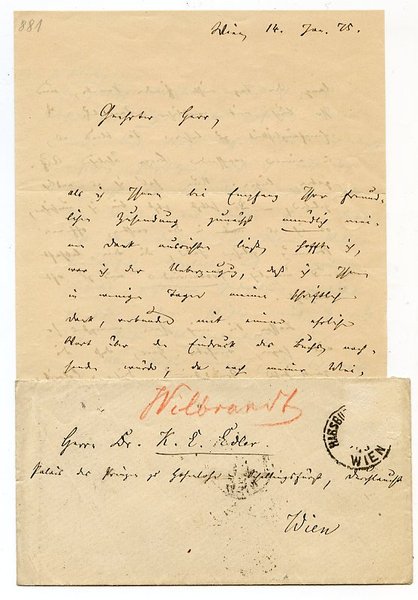 881
Wien, 14. Jan. 75.
Geehrter Herr,
als ich Ihnen bei Empfang Ihrer freund-
lichen Zusendung zunächst mündlich mei-
nen Dank ausrichten ließ, hoffte ich,
war ich der Ueberzeugung, daß ich Ihnen
in wenigen Tagen meinen schriftlichen
Dank, verbunden mit einem ehrlichen
Wort über den Eindruck des Buchs, nach-
senden würde; da nach meiner
Wilbrandt
HABSBU
WIEN
Herrn Dr. K. E. Edler.
Palais des Prinzen zu Hohenlohe-Schillingsfürst, Durchlaucht
Wien